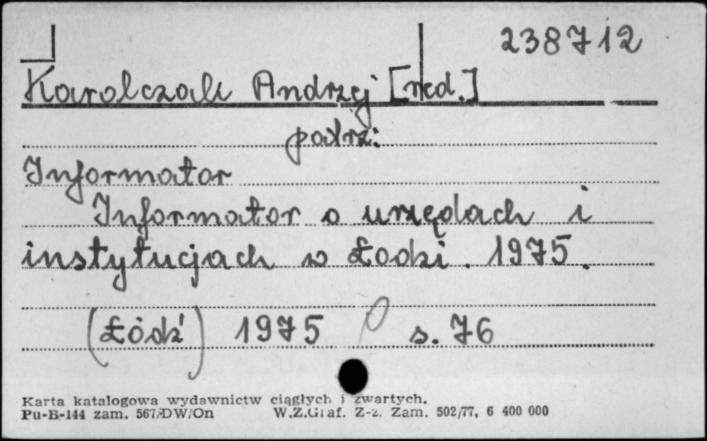 238712
Karolczak Andrzej [red.]
patrz:
Informator
Informator o urzędach i
instytucjach w Łodzi. 1975.
(Łódź) 1975 s. 76
Karta katalogowa wydawnictw ciągłych i zwartych.
Pu-B-144 zam. 567/DW/On W.Z.Graf. Z-z. Zam. 502/77, 6 400 000